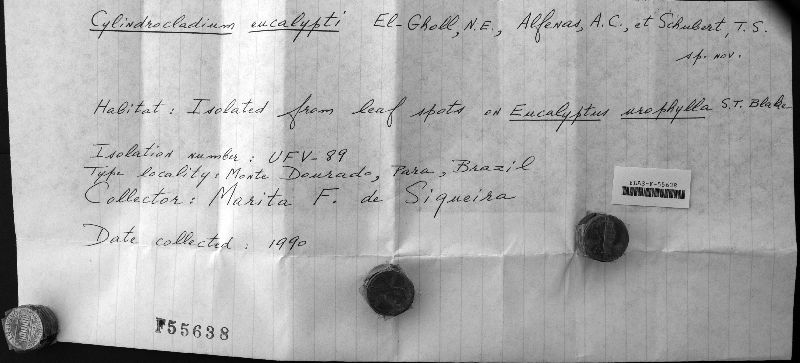 Cylindrocladium eucalypti El-Gholl, N.E., Alfenas, A.C., et Schubert, T.S.
sp. nov.
Habitat: Isolated from leaf spots on Eucalyptus urophylla S.T. Blake
Isolation number: UFV-89
Type locality: Monte Dourado, Para, Brazil
FLAS-F-55638
Collector: Marita F. de Siqueira
Date collected: 1990
F55638